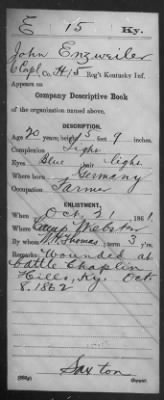 E 15 Ky.
John Enzweiler
Corpl, Co. H, 15 Reg't Kentucky Inf.
Appears on
Company Descriptive Book
of the organization named above.
DESCRIPTION.
Age 20 years; height 5 feet 9 inches.
Complexion Light
Eyes Blue; hair Light
Where born Germany
Occupation Farmer
ENLISTMENT.
When Oct. 21, 1861.
Where Camp Webster
By whom Thomas; term 3 y'rs.
Remarks: Wounded at
battle Chaplin
Hills, Ky. Oct.
8. 1862
Saxton